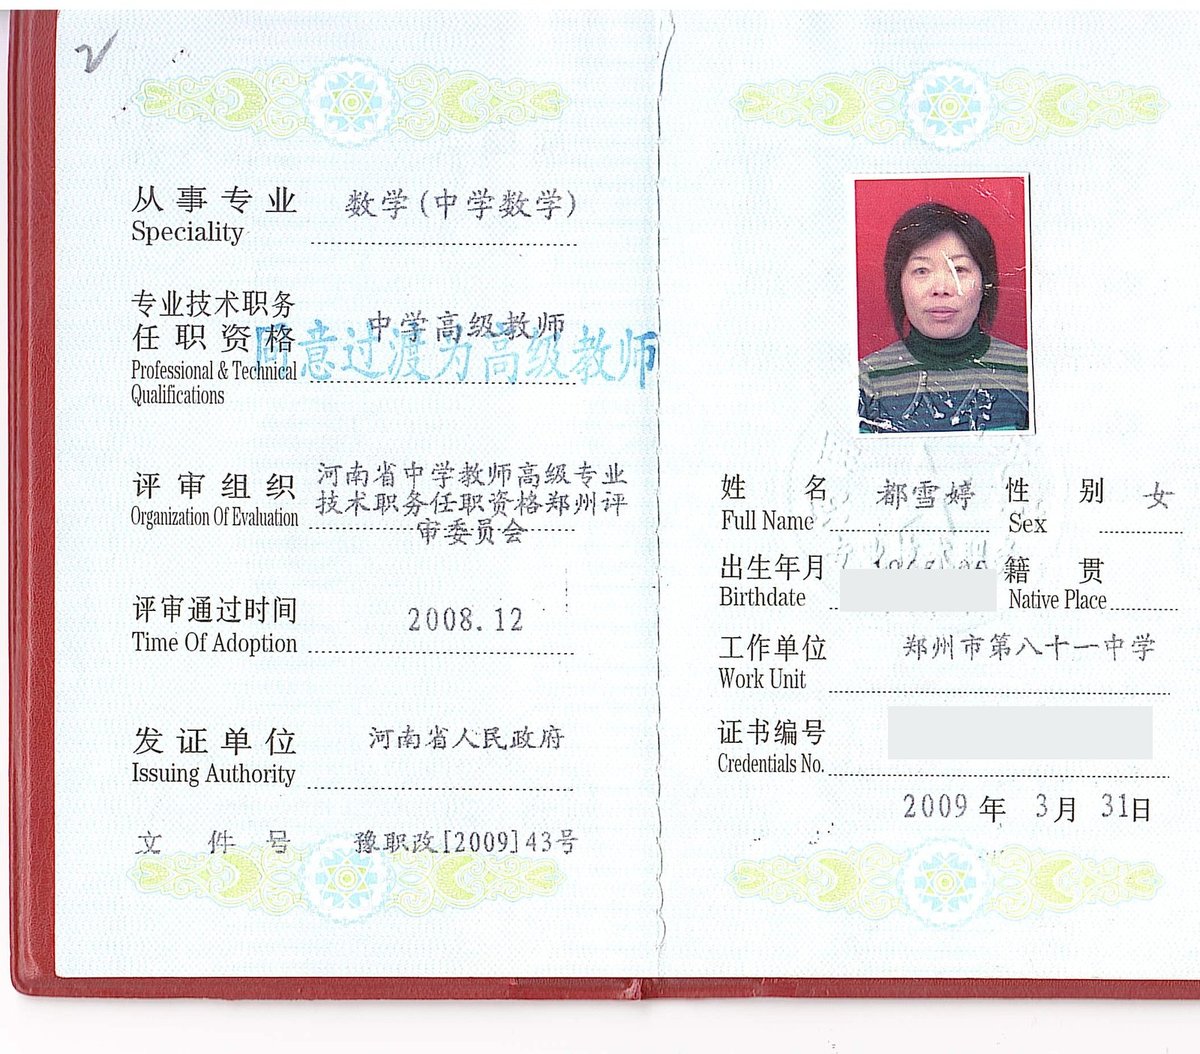 从事专业 数学(中学数学)
Speciality
专业技术职务
任职资格 中学高级教师
同意过渡为高级教师
Professional & Technical
Qualifications
河南省中学教师高级专业
评审组织 技术职务任职资格郑州评
Organization Of Evaluation 审委员会
评审通过时间 2008.12
Time Of Adoption
发证单位 河南省人民政府
Issuing Authority
文件号 豫职改[2009]43号
姓名 都雪婷 性别 女
Full Name Sex
出生年月 籍贯
Birthdate Native Place
工作单位 郑州市第八十一中学
Work Unit
证书编号
Credentials No.
2009年 3月 31日